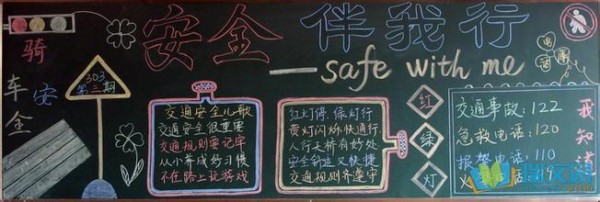 安全伴我行
safe with me
骑车安全
303
第三期
交通安全儿歌
交通安全很重要
交通规则要记牢
从小养成好习惯
不在路上玩游戏
红灯停 绿灯行
黄灯闪烁快通行
人行天桥有好处
安全舒适又快捷
交通规则齐遵守
红
绿
灯
交通事故：122
急救电话：120
报警电话：110
我知道